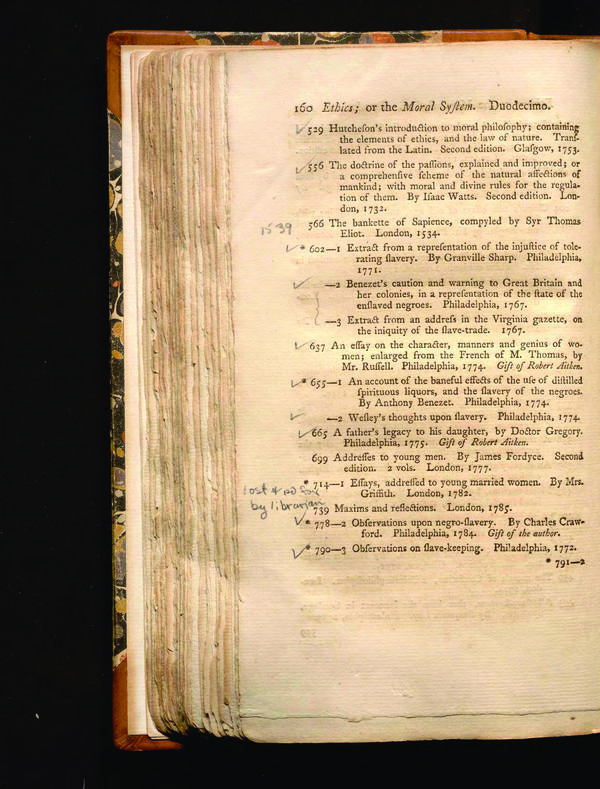 160 Ethics; or the Moral Syſtem. Duodecimo.
529 Hutcheſon's introduction to moral philoſophy; containing
the elements of ethics, and the law of nature. Tranſ-
lated from the Latin. Second edition. Glaſgow, 1753.
556 The doctrine of the paſſions, explained and improved; or
a comprehenſive ſcheme of the natural affections of
mankind; with moral and divine rules for the regula-
tion of them. By Iſaac Watts. Second edition. Lon-
don, 1732.
566 The bankette of Sapience, compyled by Syr Thomas
1539
Eliot. London, 1534.
* 602—1 Extract from a repreſentation of the injuſtice of tole-
rating ſlavery. By Granville Sharp. Philadelphia,
1771.
—2 Benezet's caution and warning to Great Britain and
her colonies, in a repreſentation of the ſtate of the
enſlaved negroes. Philadelphia, 1767.
—3 Extract from an addreſs in the Virginia gazette, on
the iniquity of the ſlave-trade. 1767.
637 An eſſay on the character, manners and genius of wo-
men; enlarged from the French of M. Thomas, by
Mr. Ruſſell. Philadelphia, 1774. Gift of Robert Aitken.
* 655—1 An account of the baneful effects of the uſe of diſtilled
ſpirituous liquors, and the ſlavery of the negroes.
By Anthony Benezet. Philadelphia, 1774.
—2 Weſley's thoughts upon ſlavery. Philadelphia, 1774.
665 A father's legacy to his daughter, by Doctor Gregory.
Philadelphia, 1775. Gift of Robert Aitken.
699 Addreſſes to young men. By James Fordyce. Second
edition. 2 vols. London, 1777.
* 714—1 Eſſays, addreſſed to young married women. By Mrs.
Griffith. London, 1782.
lost & pd for
by librarian
739 Maxims and reflections. London, 1785.
* 778—2 Obſervations upon negro-ſlavery. By Charles Craw-
ford. Philadelphia, 1784. Gift of the author.
* 790—3 Obſervations on ſlave-keeping. Philadelphia, 1772.
* 791—2